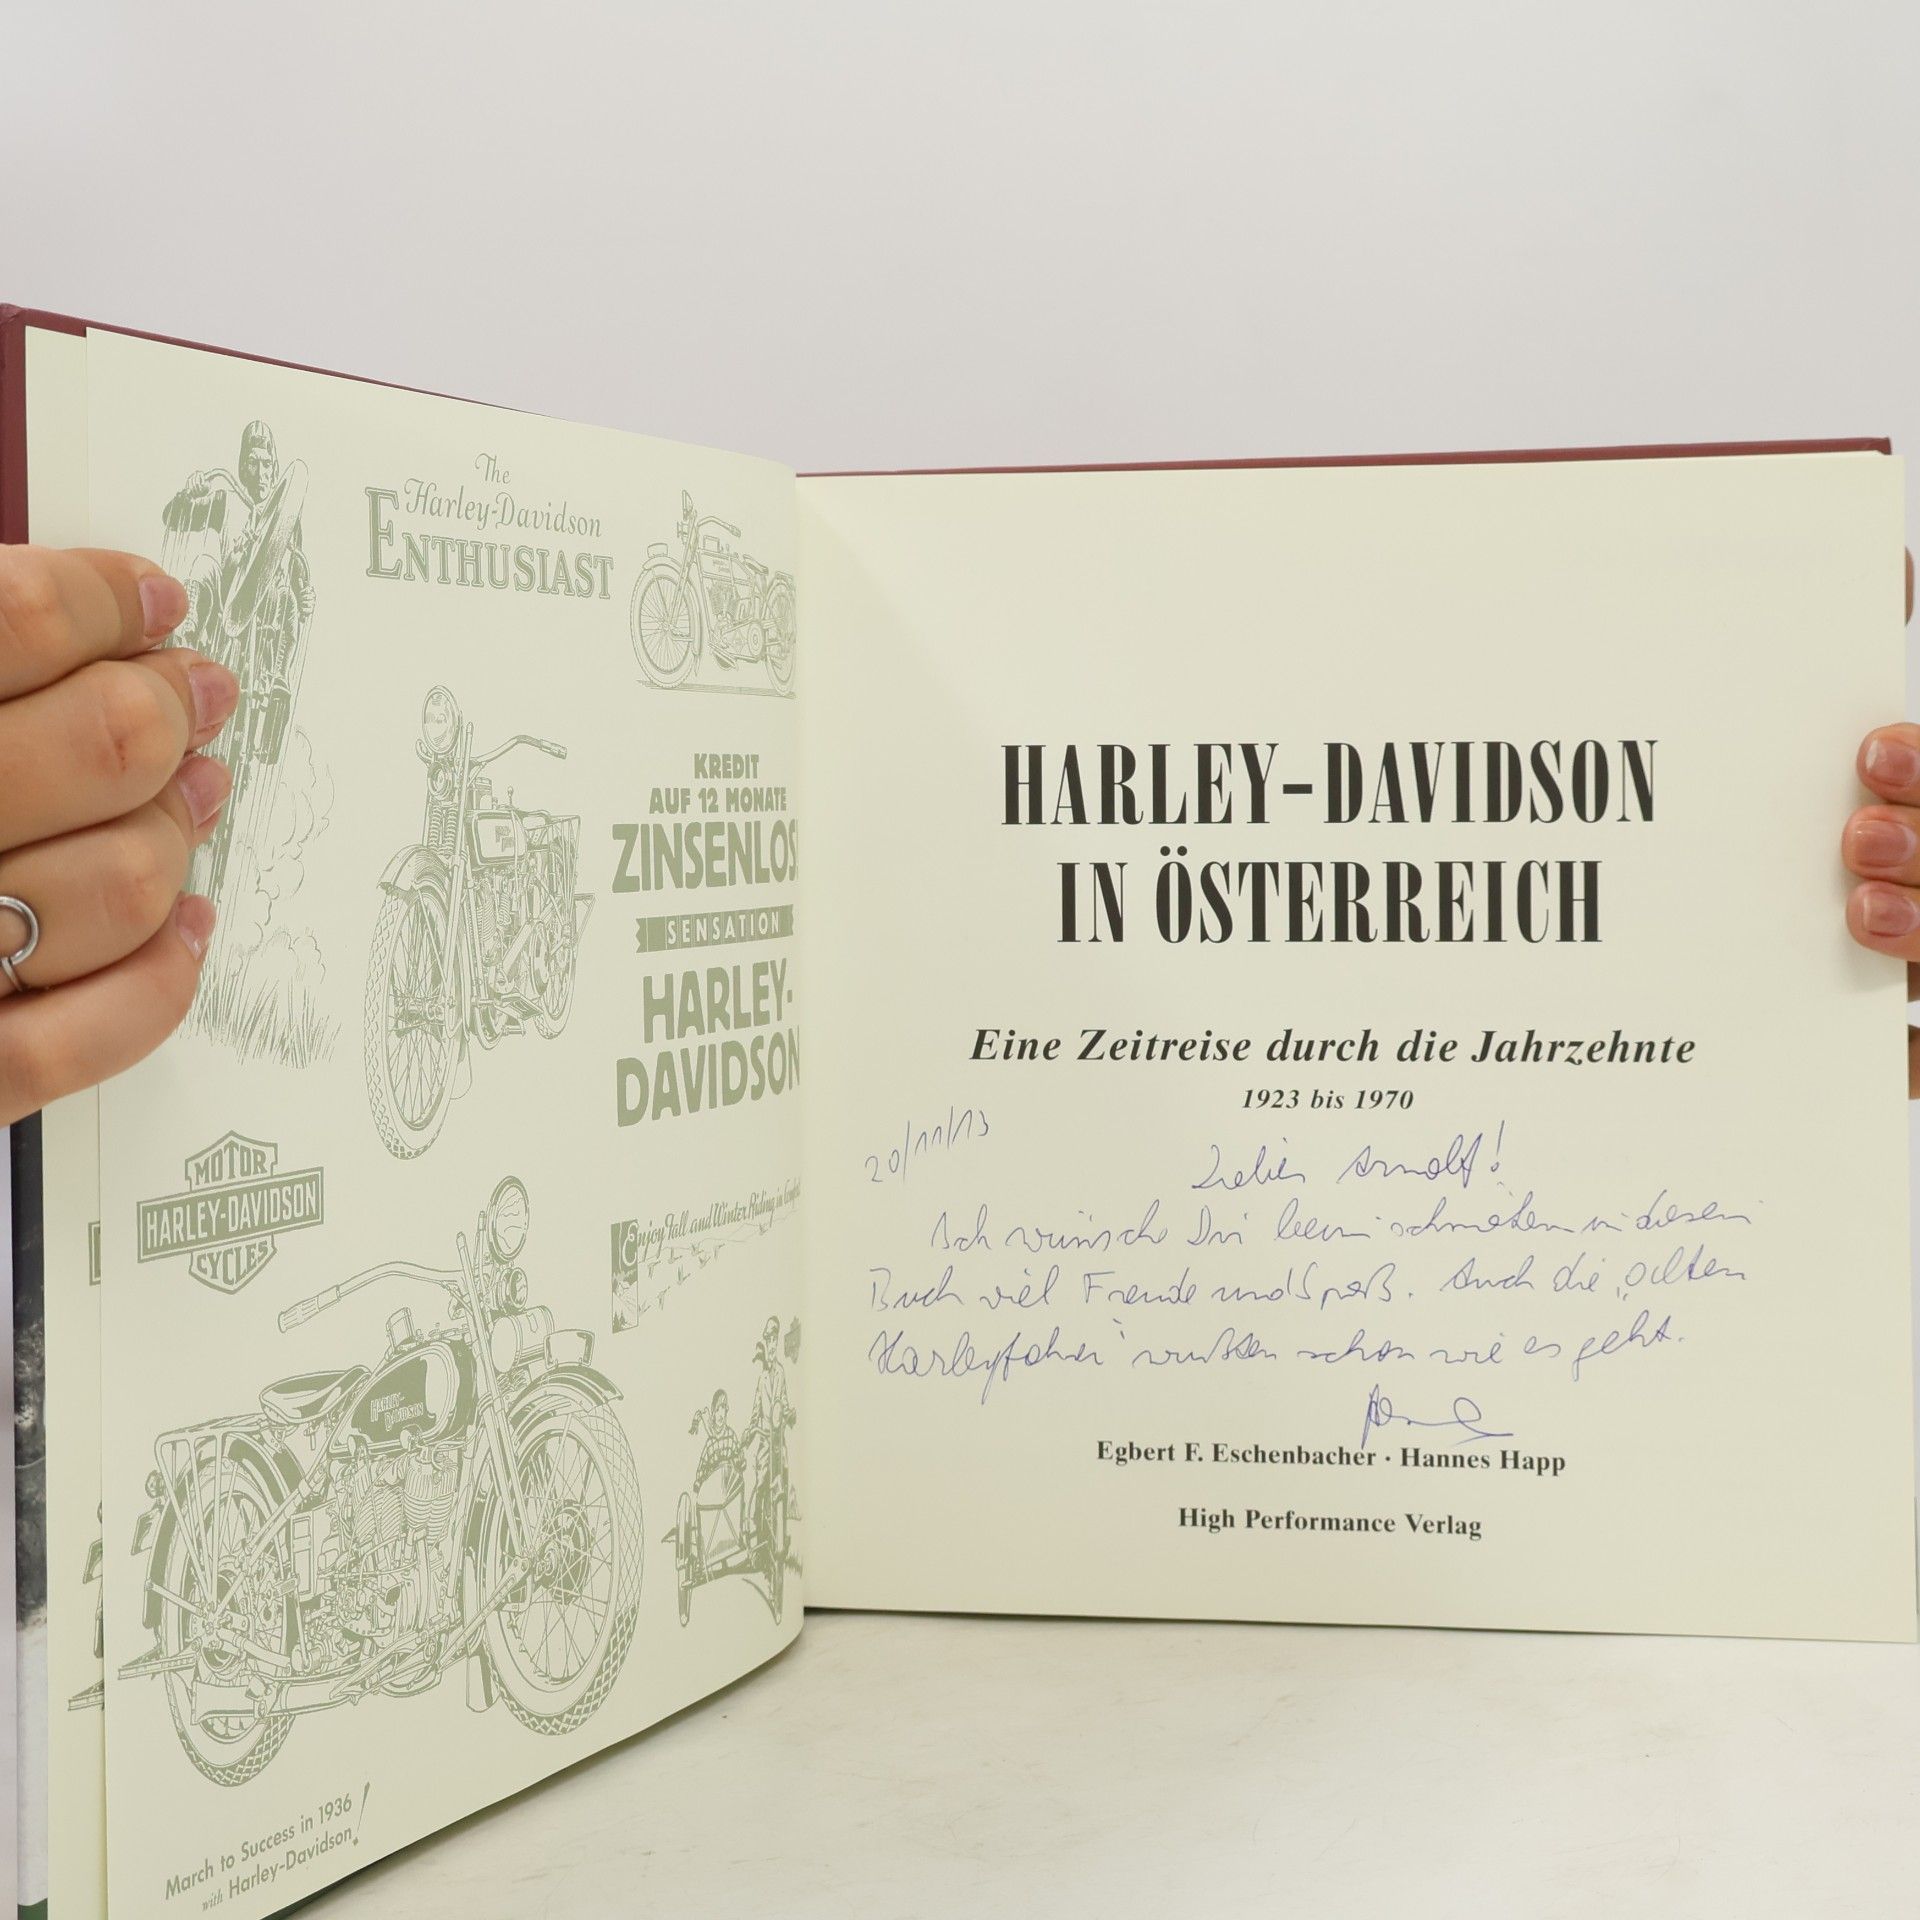 The
Harley-Davidson
ENTHUSIAST
KREDIT
AUF 12 MONATE
ZINSENLOS!
SENSATION
HARLEY-
DAVIDSON
MOTOR
HARLEY-DAVIDSON
CYCLES
Enjoy Fall and Winter Riding in
HARLEY-
DAVIDSON
March to Success in 1936
with Harley-Davidson!
HARLEY-DAVIDSON
IN ÖSTERREICH
Eine Zeitreise durch die Jahrzehnte
1923 bis 1970
20/11/13
Lieber Arnolf!
Ich wünsche Dir beim schmökern in diesem
Buch viel Freude und Spaß. Auch die „alten
Harleyfahrer" wußten schon wie es geht.
Egbert F. Eschenbacher · Hannes Happ
High Performance Verlag